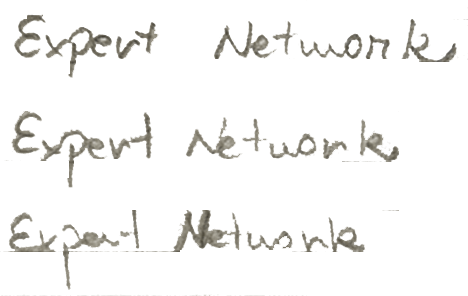 Expert Network
Expert Network
Expert Network